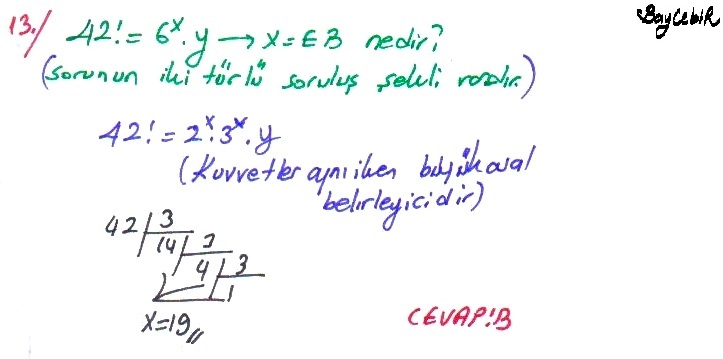 BaycebiR
13./ 42! = 6^x . y → x = EB nedir?
(Sorunun iki türlü soruluş şekli vardır.)
42! = 2^x . 3^x . y
(Kuvvetler aynı iken büyük asal
belirleyicidir)
42 | 3
14 | 3
4 | 3
1
x=19,,
CEVAP:B